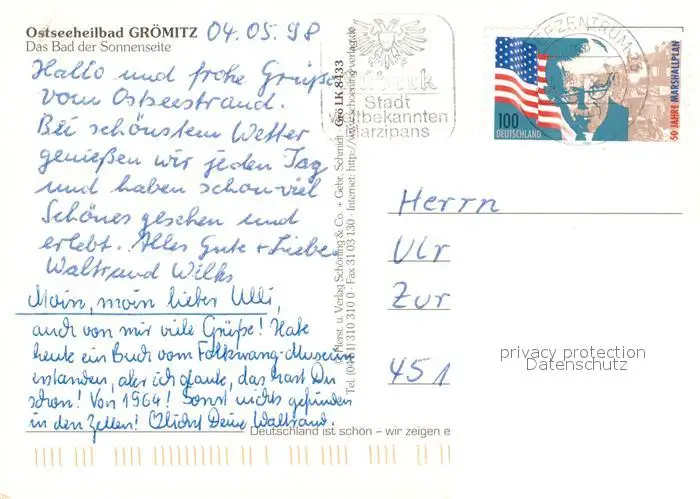 Ostseeheilbad GRÖMITZ
Das Bad der Sonnenseite
04.05.98
Hallo und frohe Grüße
vom Ostseestrand.
Bei schönstem Wetter
genießen wir jeden Tag
und haben schon viel
Schönes gesehen und
erlebt. Alles Gute + Liebe
Waltraud Wilks
Moin, moin lieber Ulli,
auch von mir viele Grüße! Habe
heute ein Buch vom Folkwang-Museum
erstanden, aber ich glaube, das hast Du
schon! Von 1964! Sonst nichts gefunden
in den Zelten! Deine Waltraud.
Deutschland ist schön – wir zeigen e
Herst. u. Verlag Schöning & Co. + Gebr. Schmidt · Grö LK 8433
Tel. (0451) 310 310 0 · Fax 31 03 130 · Internet: http://www.schoening-verlag.de
Stadt
weltbekannten
Marzipans
100
DEUTSCHLAND
50 JAHRE MARSHALLPLAN
Herrn
Ulr
Zur
451
privacy protection
Datenschutz